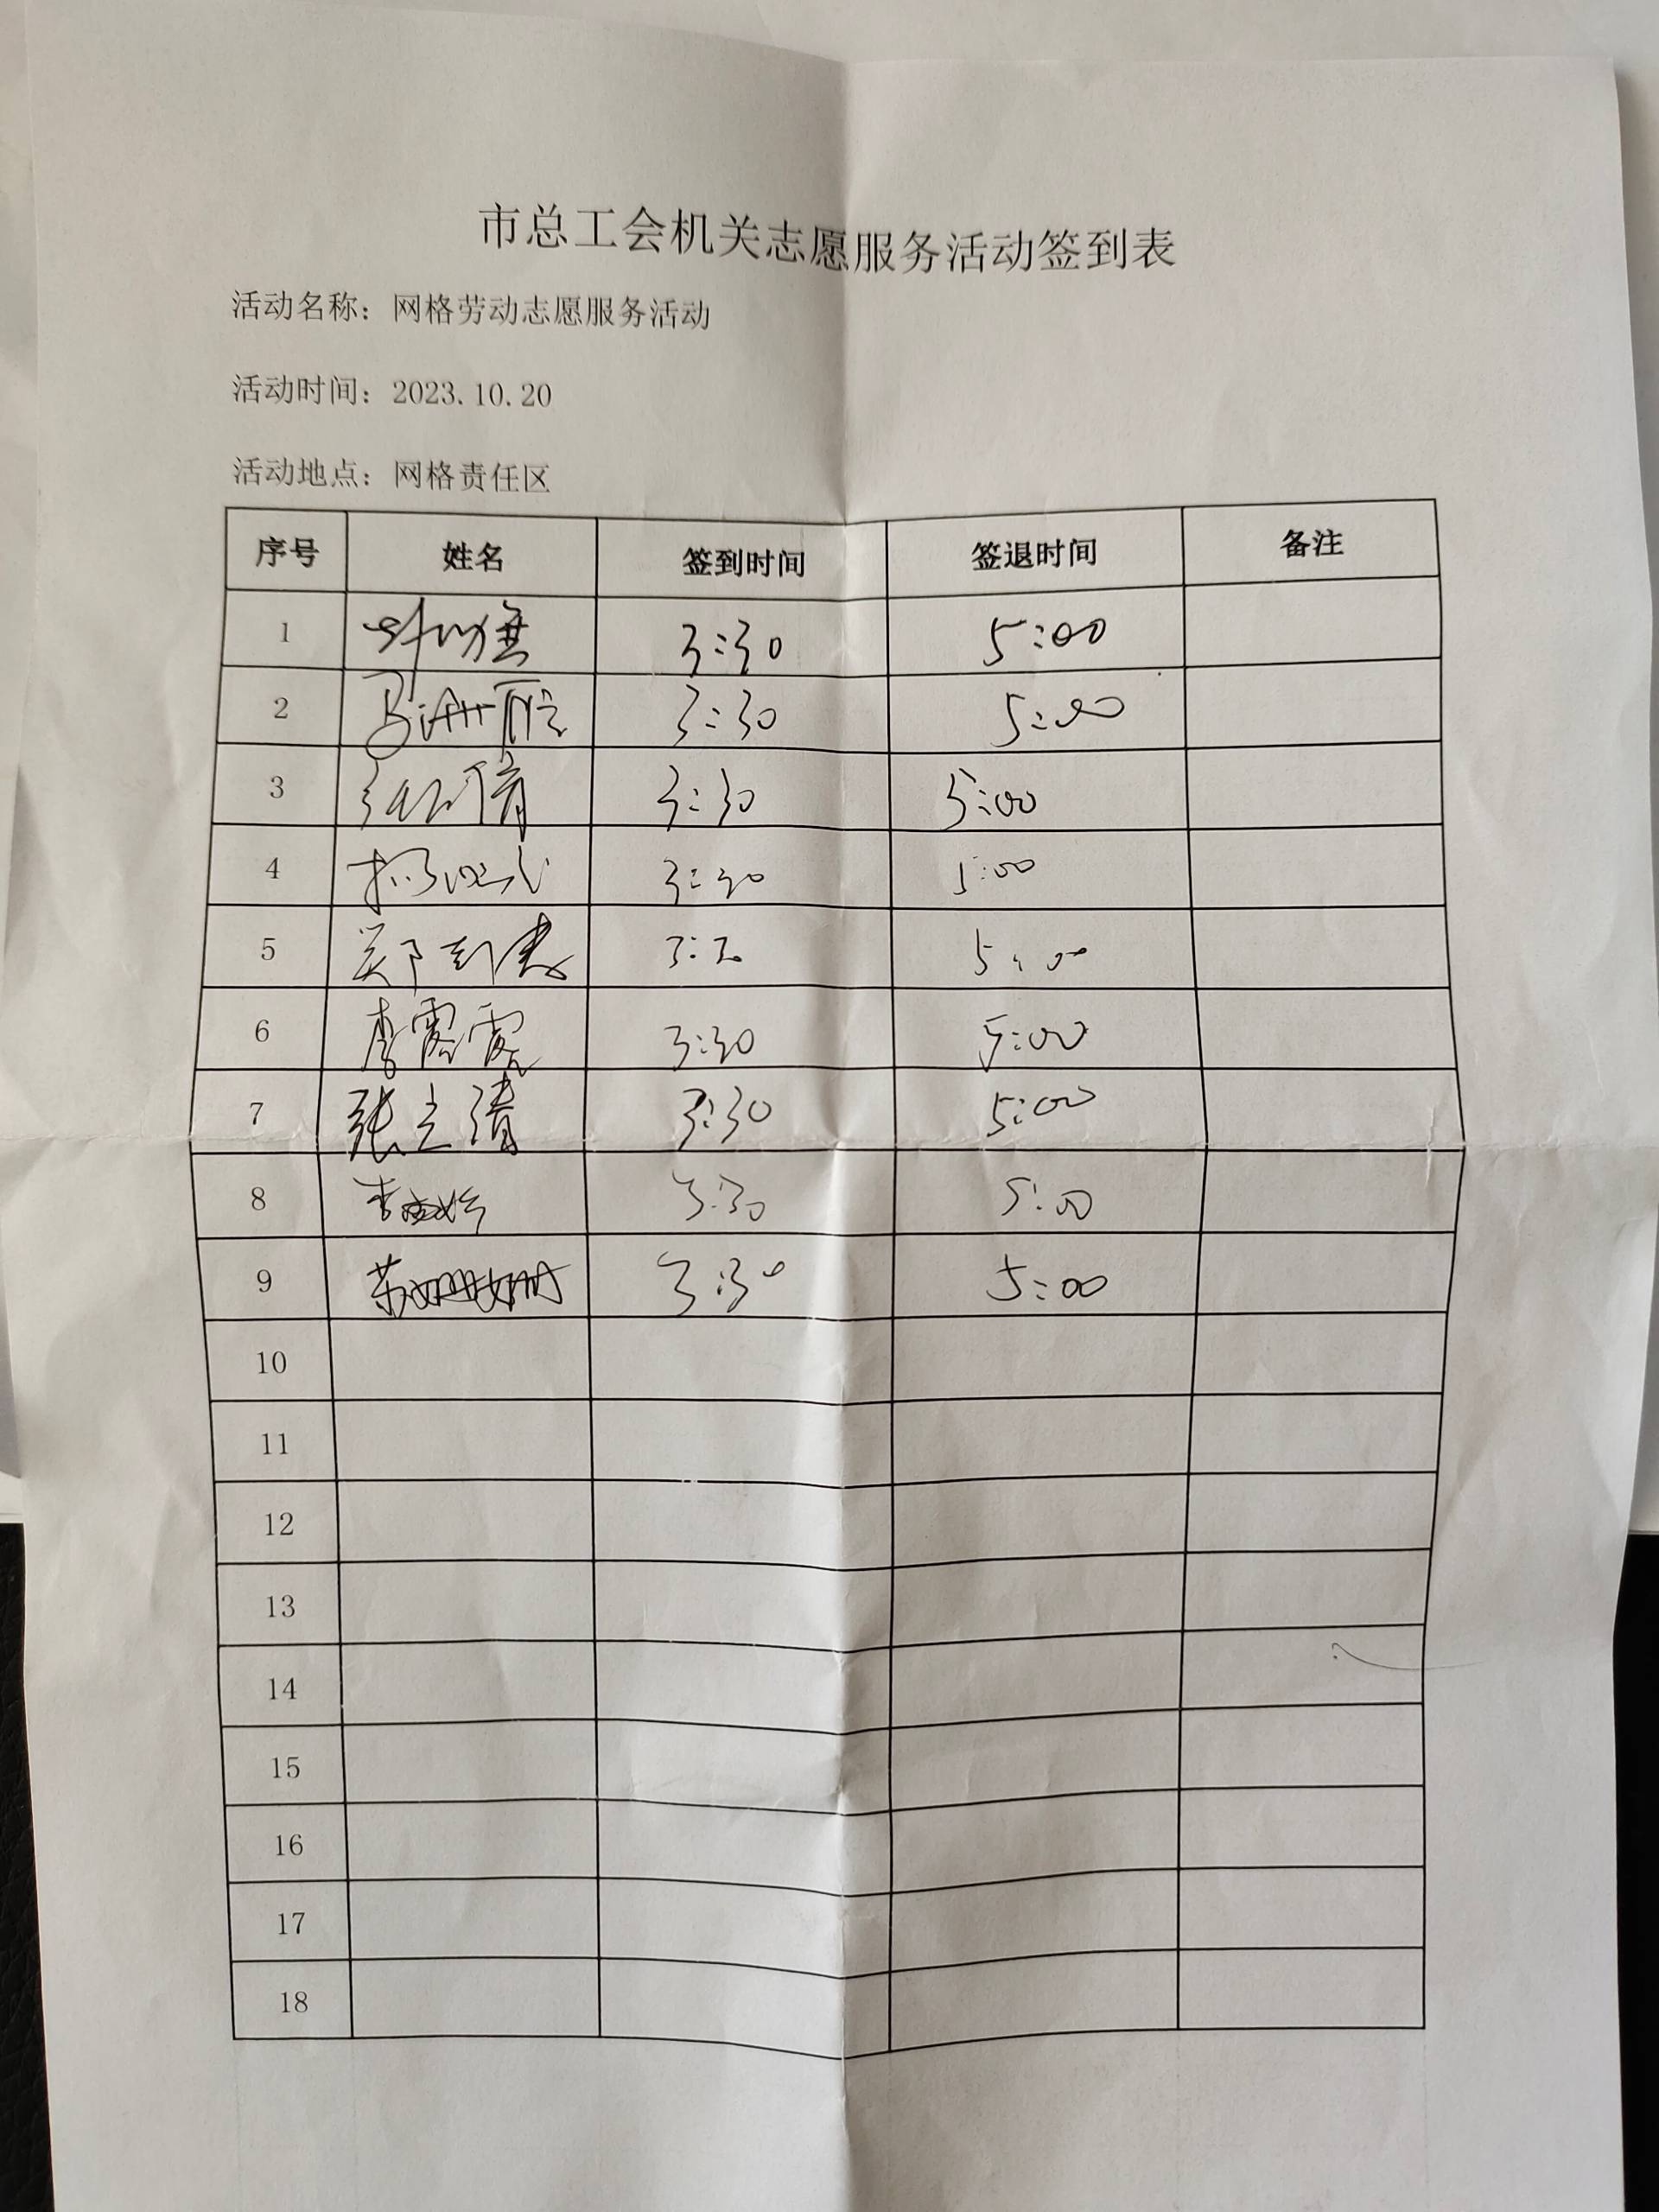 市总工会机关志愿服务活动签到表
活动名称：网格劳动志愿服务活动
活动时间：2023.10.20
活动地点：网格责任区
序号 姓名 签到时间 签退时间 备注
1 3:30 5:00
2 3:30 5:00
3 3:30 5:00
4 3:30 5:00
5 郑 5:00
6 李霞霞 3:30 5:00
7 张立清 3:30 5:00
8 李 3:30 5:00
9 苏姗姗 3:30 5:00
10
11
12
13
14
15
16
17
18